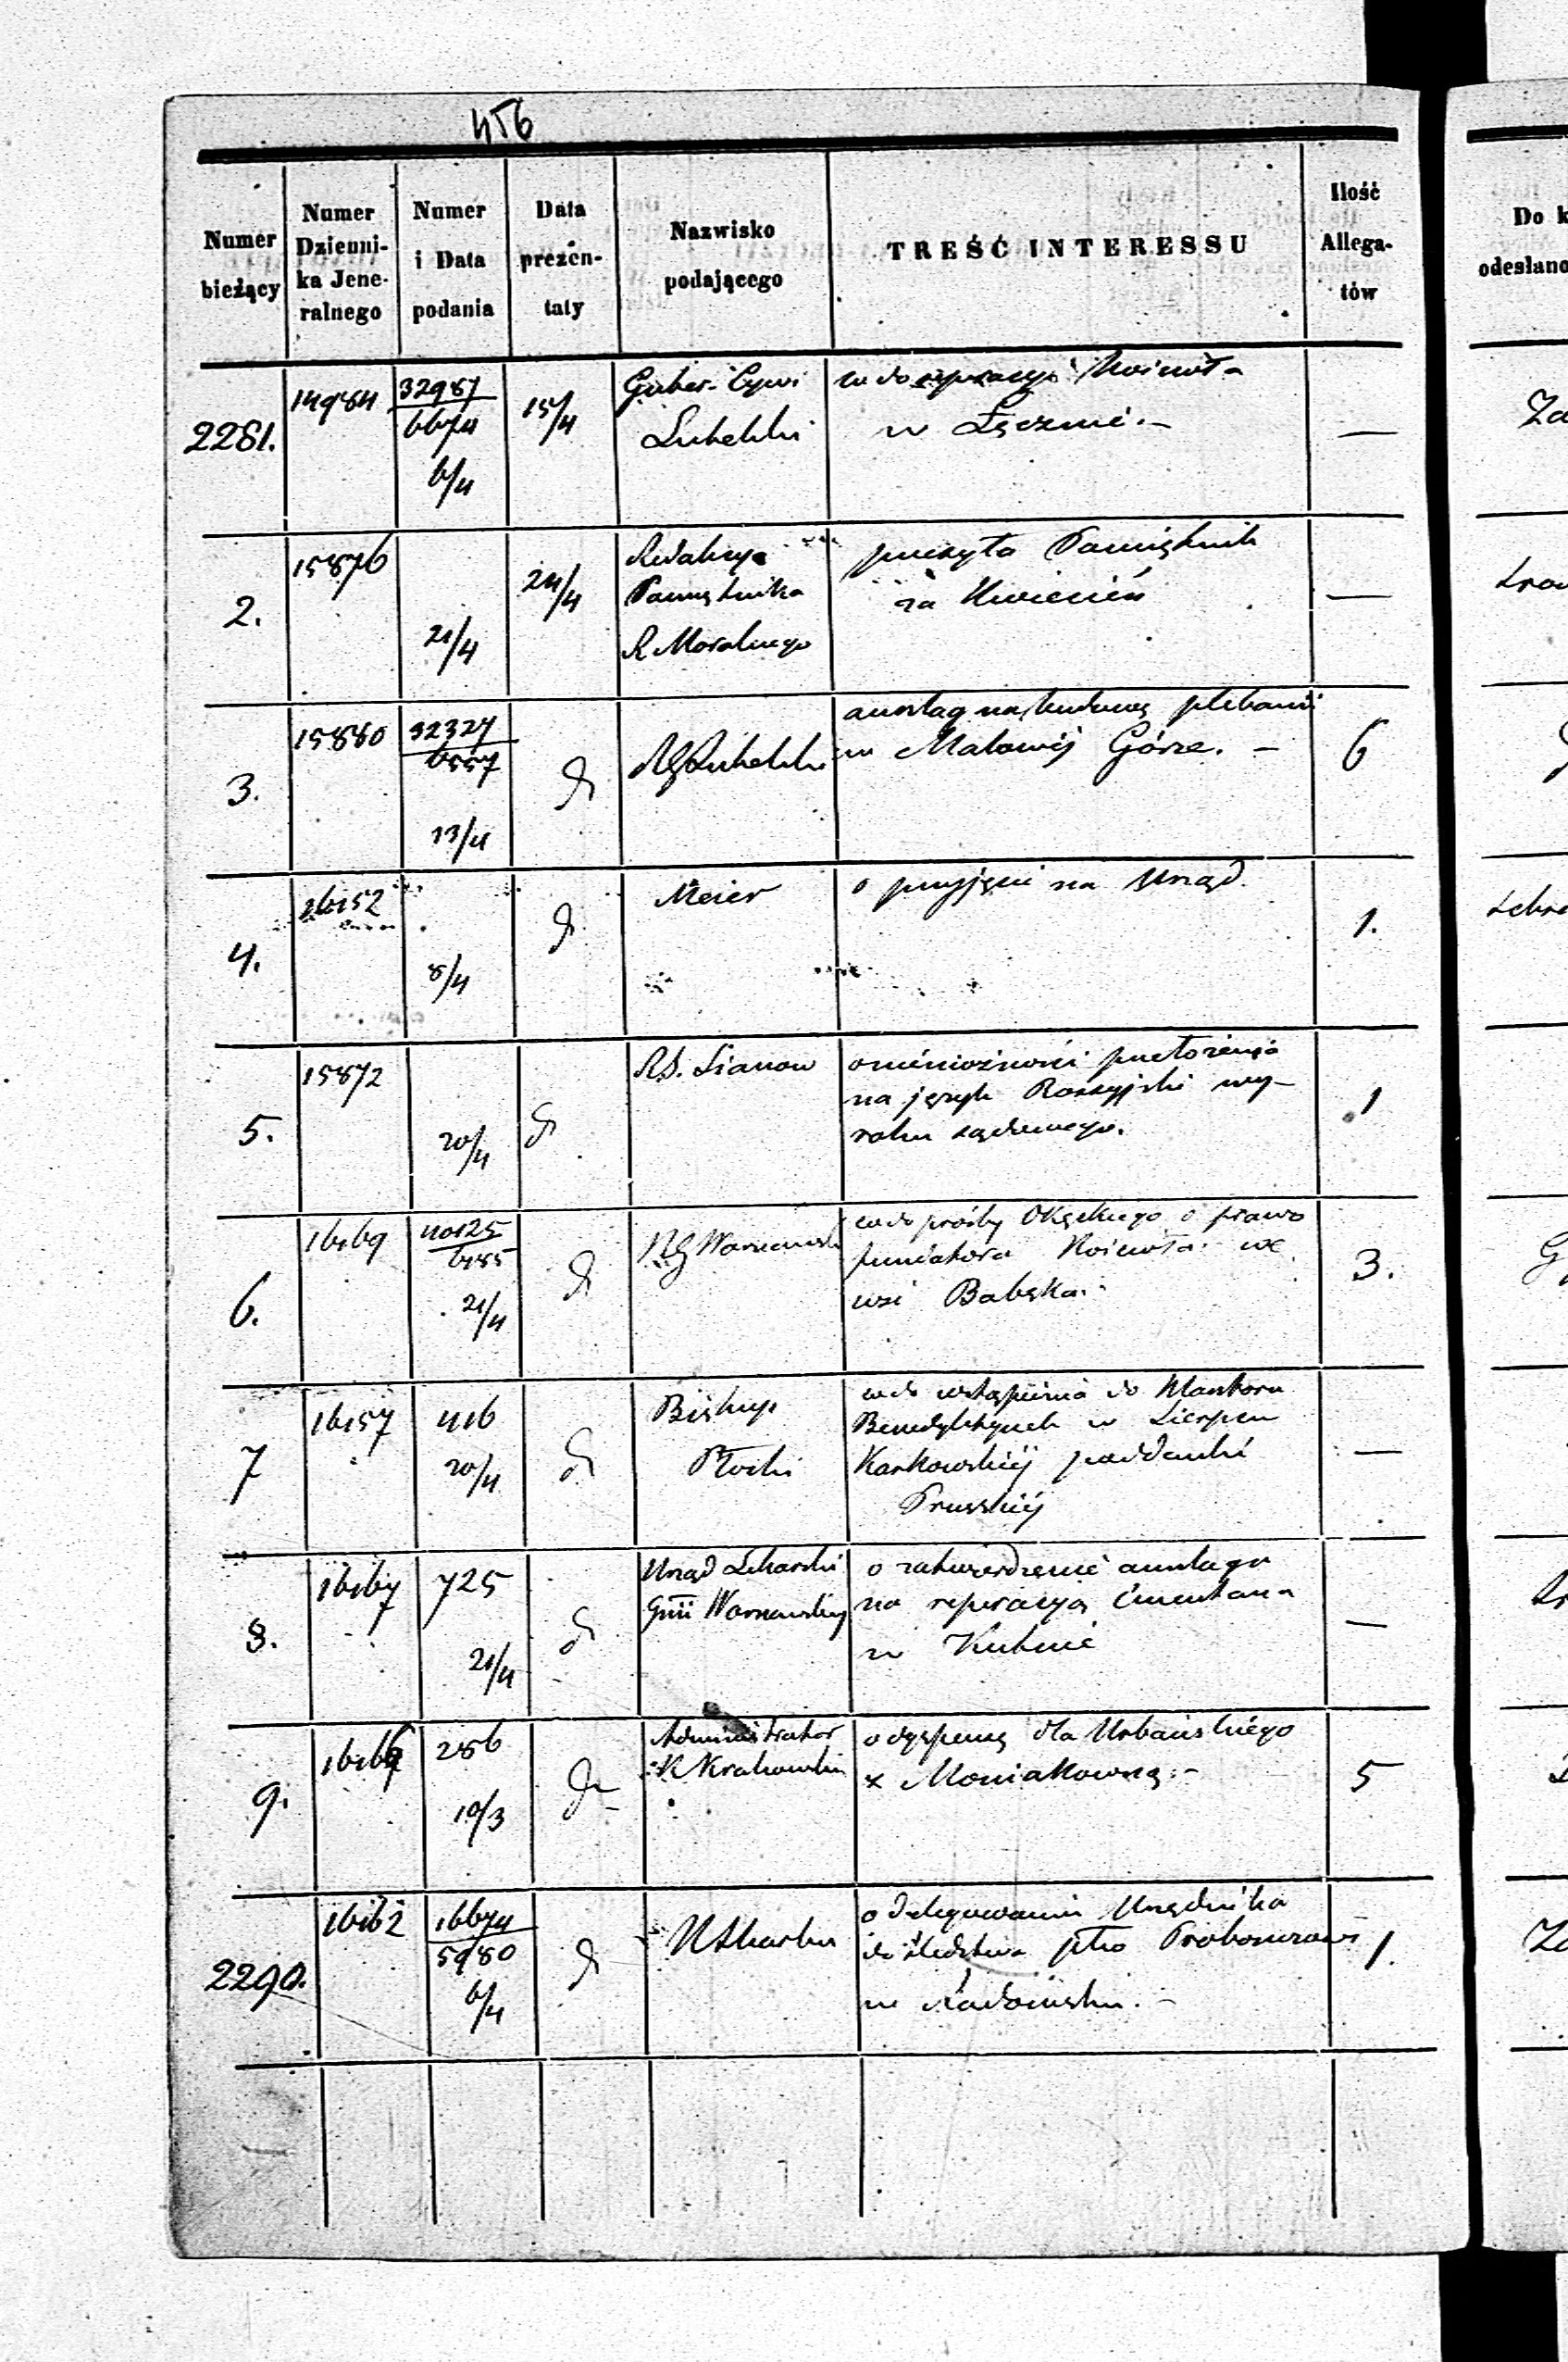 456
Numer bieżący
Numer Dzienni-
ka Jene-
ralnego
Numer i Data podania
Data prezen-
taty
Nazwisko podającego
TREŚĆ INTERESSU
Ilość Allega-
tów
Do k
odesłano
2281.
14984
32987
6674
6/4
15/4
Guber. Cywi
Lubelski
co do reperacyi Kościoła
w Łęcznie.-
—
Za
2.
15876
21/4
24/4
Redakcya
Pamiętnika
R Moralnego
przesyła Pamiętnik
za Kwiecień
—
3.
15880
32327
6557
13/4
RG Lubelski
anszlag na budowę plebanii
w Malowéj Górze. -
6
4.
16152
8/4
Meier
o przyjęcie na Urząd.
1.
5.
15872
20/4
o niemożności przełożenia
na język Rossyjski wy-
roku sądowego.
1
6.
16169
40125
6185
21/4
RG Warszawski
co do prośby Okęckiego o prawo
Kościoła we
wsi Babsku.
3.
7
16157
416
20/4
Biskup
Płocki
co do wstąpienia do Klasztoru
Benedyktynek w Sierpcu
Karkowskiéj poddanki
Pruskiéj
—
8.
16167
725
21/4
Urząd Lekarski
Gnii Warszawskiéj
o zatwierdzenie anszlagu
na reperacyą Cmentarza
w Kutnie
—
9.
286
19/3
Administrator
o dyspensę dla Urbańskiego
z Moniakowną.-
5
2290.
16162
16674
5980
6/4
o delegowaniu Urzędnika
do śledztwa płko Proboszczowi
w
1.
Za